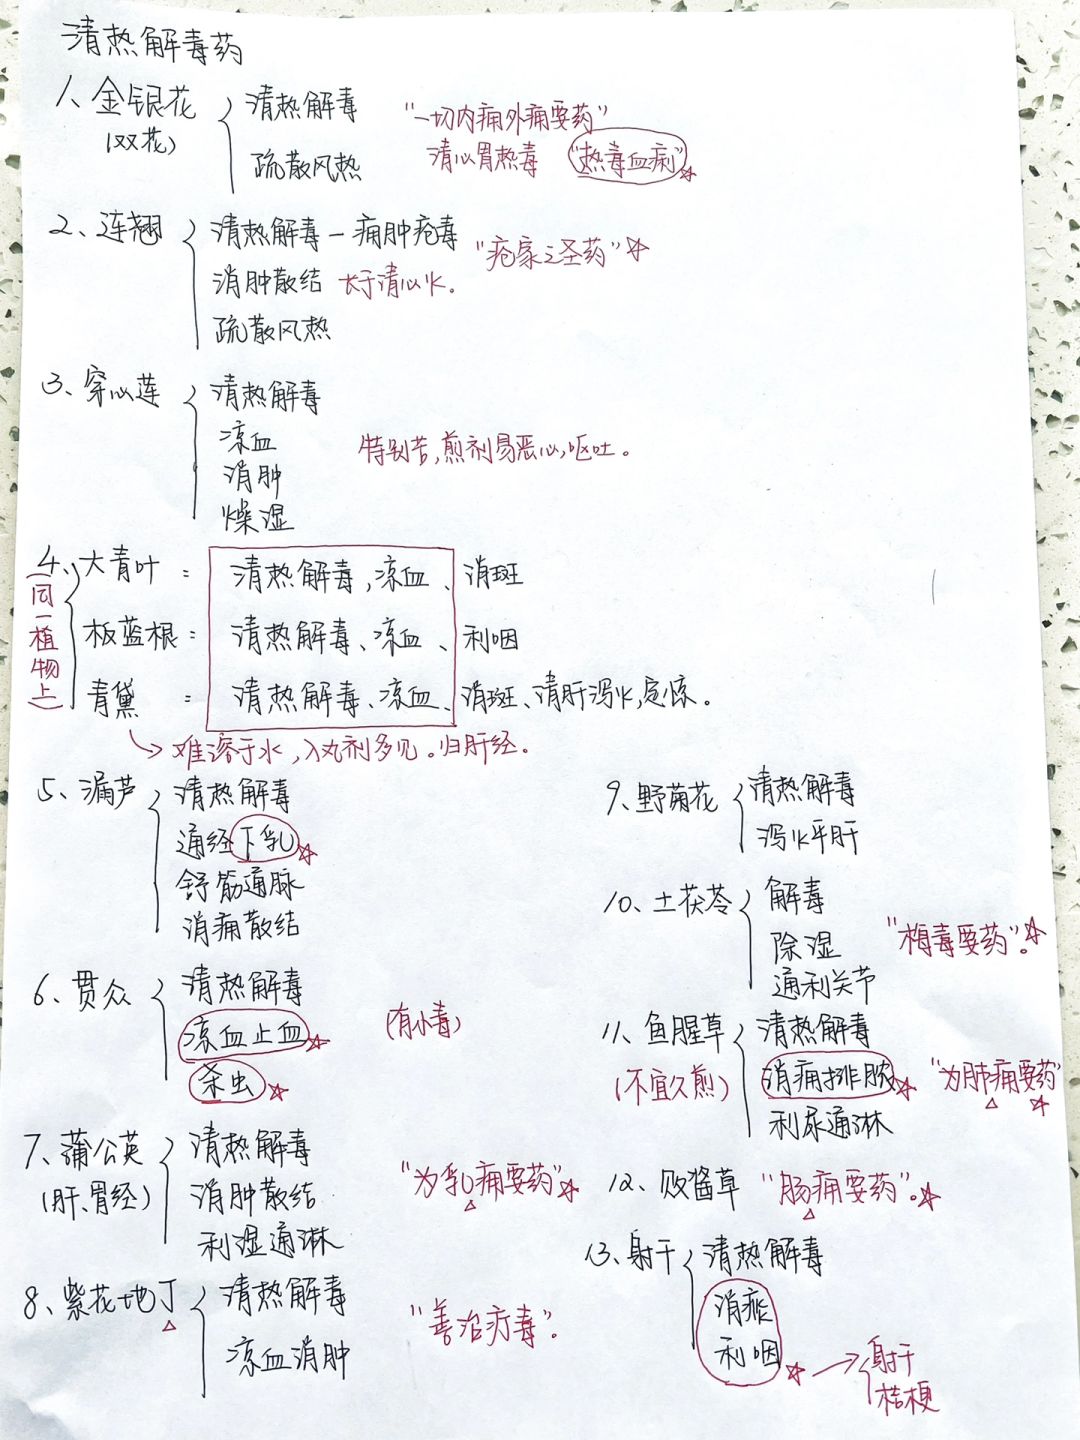 清热解毒药
1、金银花 清热解毒 "一切内痈外痈要药"
(双花) 疏散风热 清心胃热毒 "热毒血痢"
2、连翘 清热解毒一痈肿疮毒 "疮家之圣药"
消肿散结 长于清心火。
疏散风热
3、穿心莲 清热解毒
凉血 特别苦,煎剂易恶心,呕吐。
消肿
燥湿
4、大青叶: 清热解毒,凉血、消斑
(同一植物上)
板蓝根: 清热解毒、凉血、利咽
青黛: 清热解毒、凉血、消斑、清肝泻火,定惊。
难溶于水,入丸剂多见。归肝经。
5、漏芦 清热解毒
通经下乳
舒筋通脉
消痈散结
6、贯众 清热解毒
凉血止血 (有小毒)
杀虫
7、蒲公英 清热解毒
(肝、胃经) 消肿散结 "为乳痈要药"
利湿通淋
8、紫花地丁 清热解毒
凉血消肿 "善治疔毒".
9、野菊花 清热解毒
泻火平肝
10、土茯苓 解毒
除湿 "梅毒要药"。
通利关节
11、鱼腥草 清热解毒
(不宜久煎) 消痈排脓 "为肺痈要药"
利尿通淋
12、败酱草 "肠痈要药"。
13、射干 清热解毒
消痰
利咽 射干
桔梗